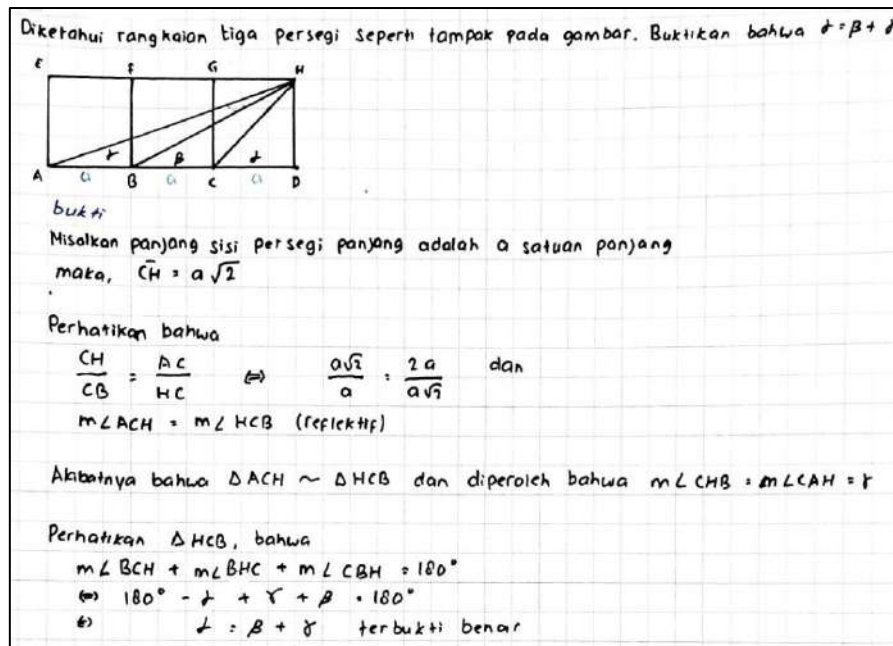 Diketahui rangkaian tiga persegi seperti tampak pada gambar. Buktikan bahwa α = β + γ
E F G H
γ β α
A a B a C a D
bukti
Misalkan panjang sisi persegi panjang adalah a satuan panjang
maka, C̅H̅ = a√2
Perhatikan bahwa
CH/CB = AC/HC ⇔ a√2/a = 2a/a√2 dan
m∠ACH = m∠HCB (reflektif)
Akibatnya bahwa ΔACH ~ ΔHCB dan diperoleh bahwa m∠CHB = m∠CAH = γ
Perhatikan ΔHCB, bahwa
m∠BCH + m∠BHC + m∠CBH = 180°
⇔ 180° - α + γ + β = 180°
⇔ α = β + γ terbukti benar